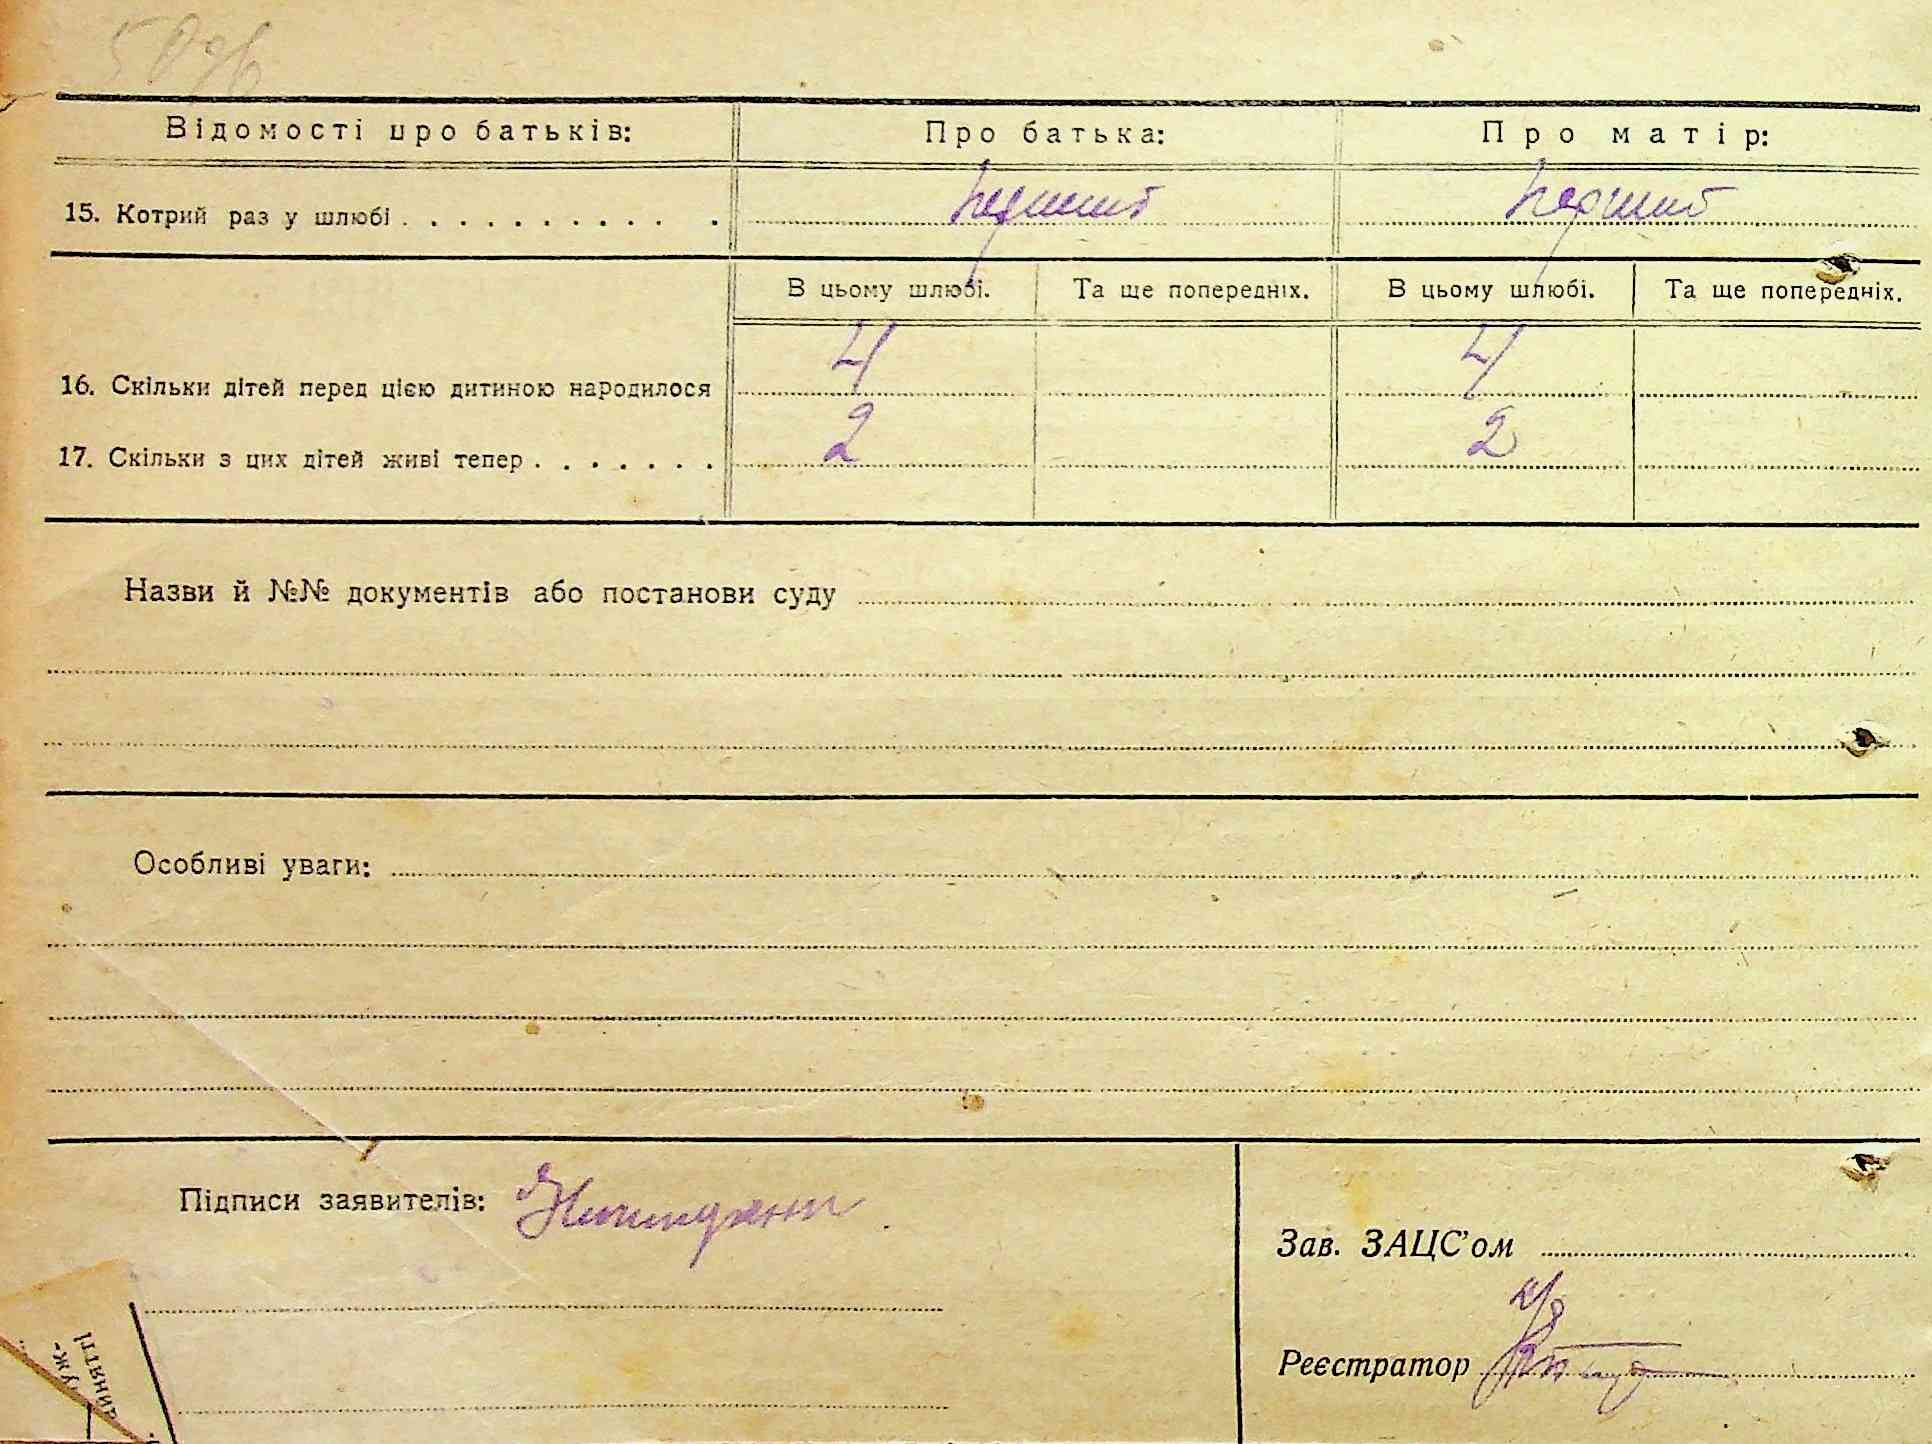 Відомості про батьків: Про батька: Про матір:
15. Котрий раз у шлюбі . . . . . . . . . . . перший перший
В цьому шлюбі. Та ще попередніх. В цьому шлюбі. Та ще попередніх.
16. Скільки дітей перед цією дитиною народилося 4 4
17. Скільки з цих дітей живі тепер . . . . . . . 2 2
Назви й №№ документів або постанови суду
Особливі уваги:
Підписи заявителів:
Зав. ЗАЦС'ом
Реєстратор
уж-
айняті